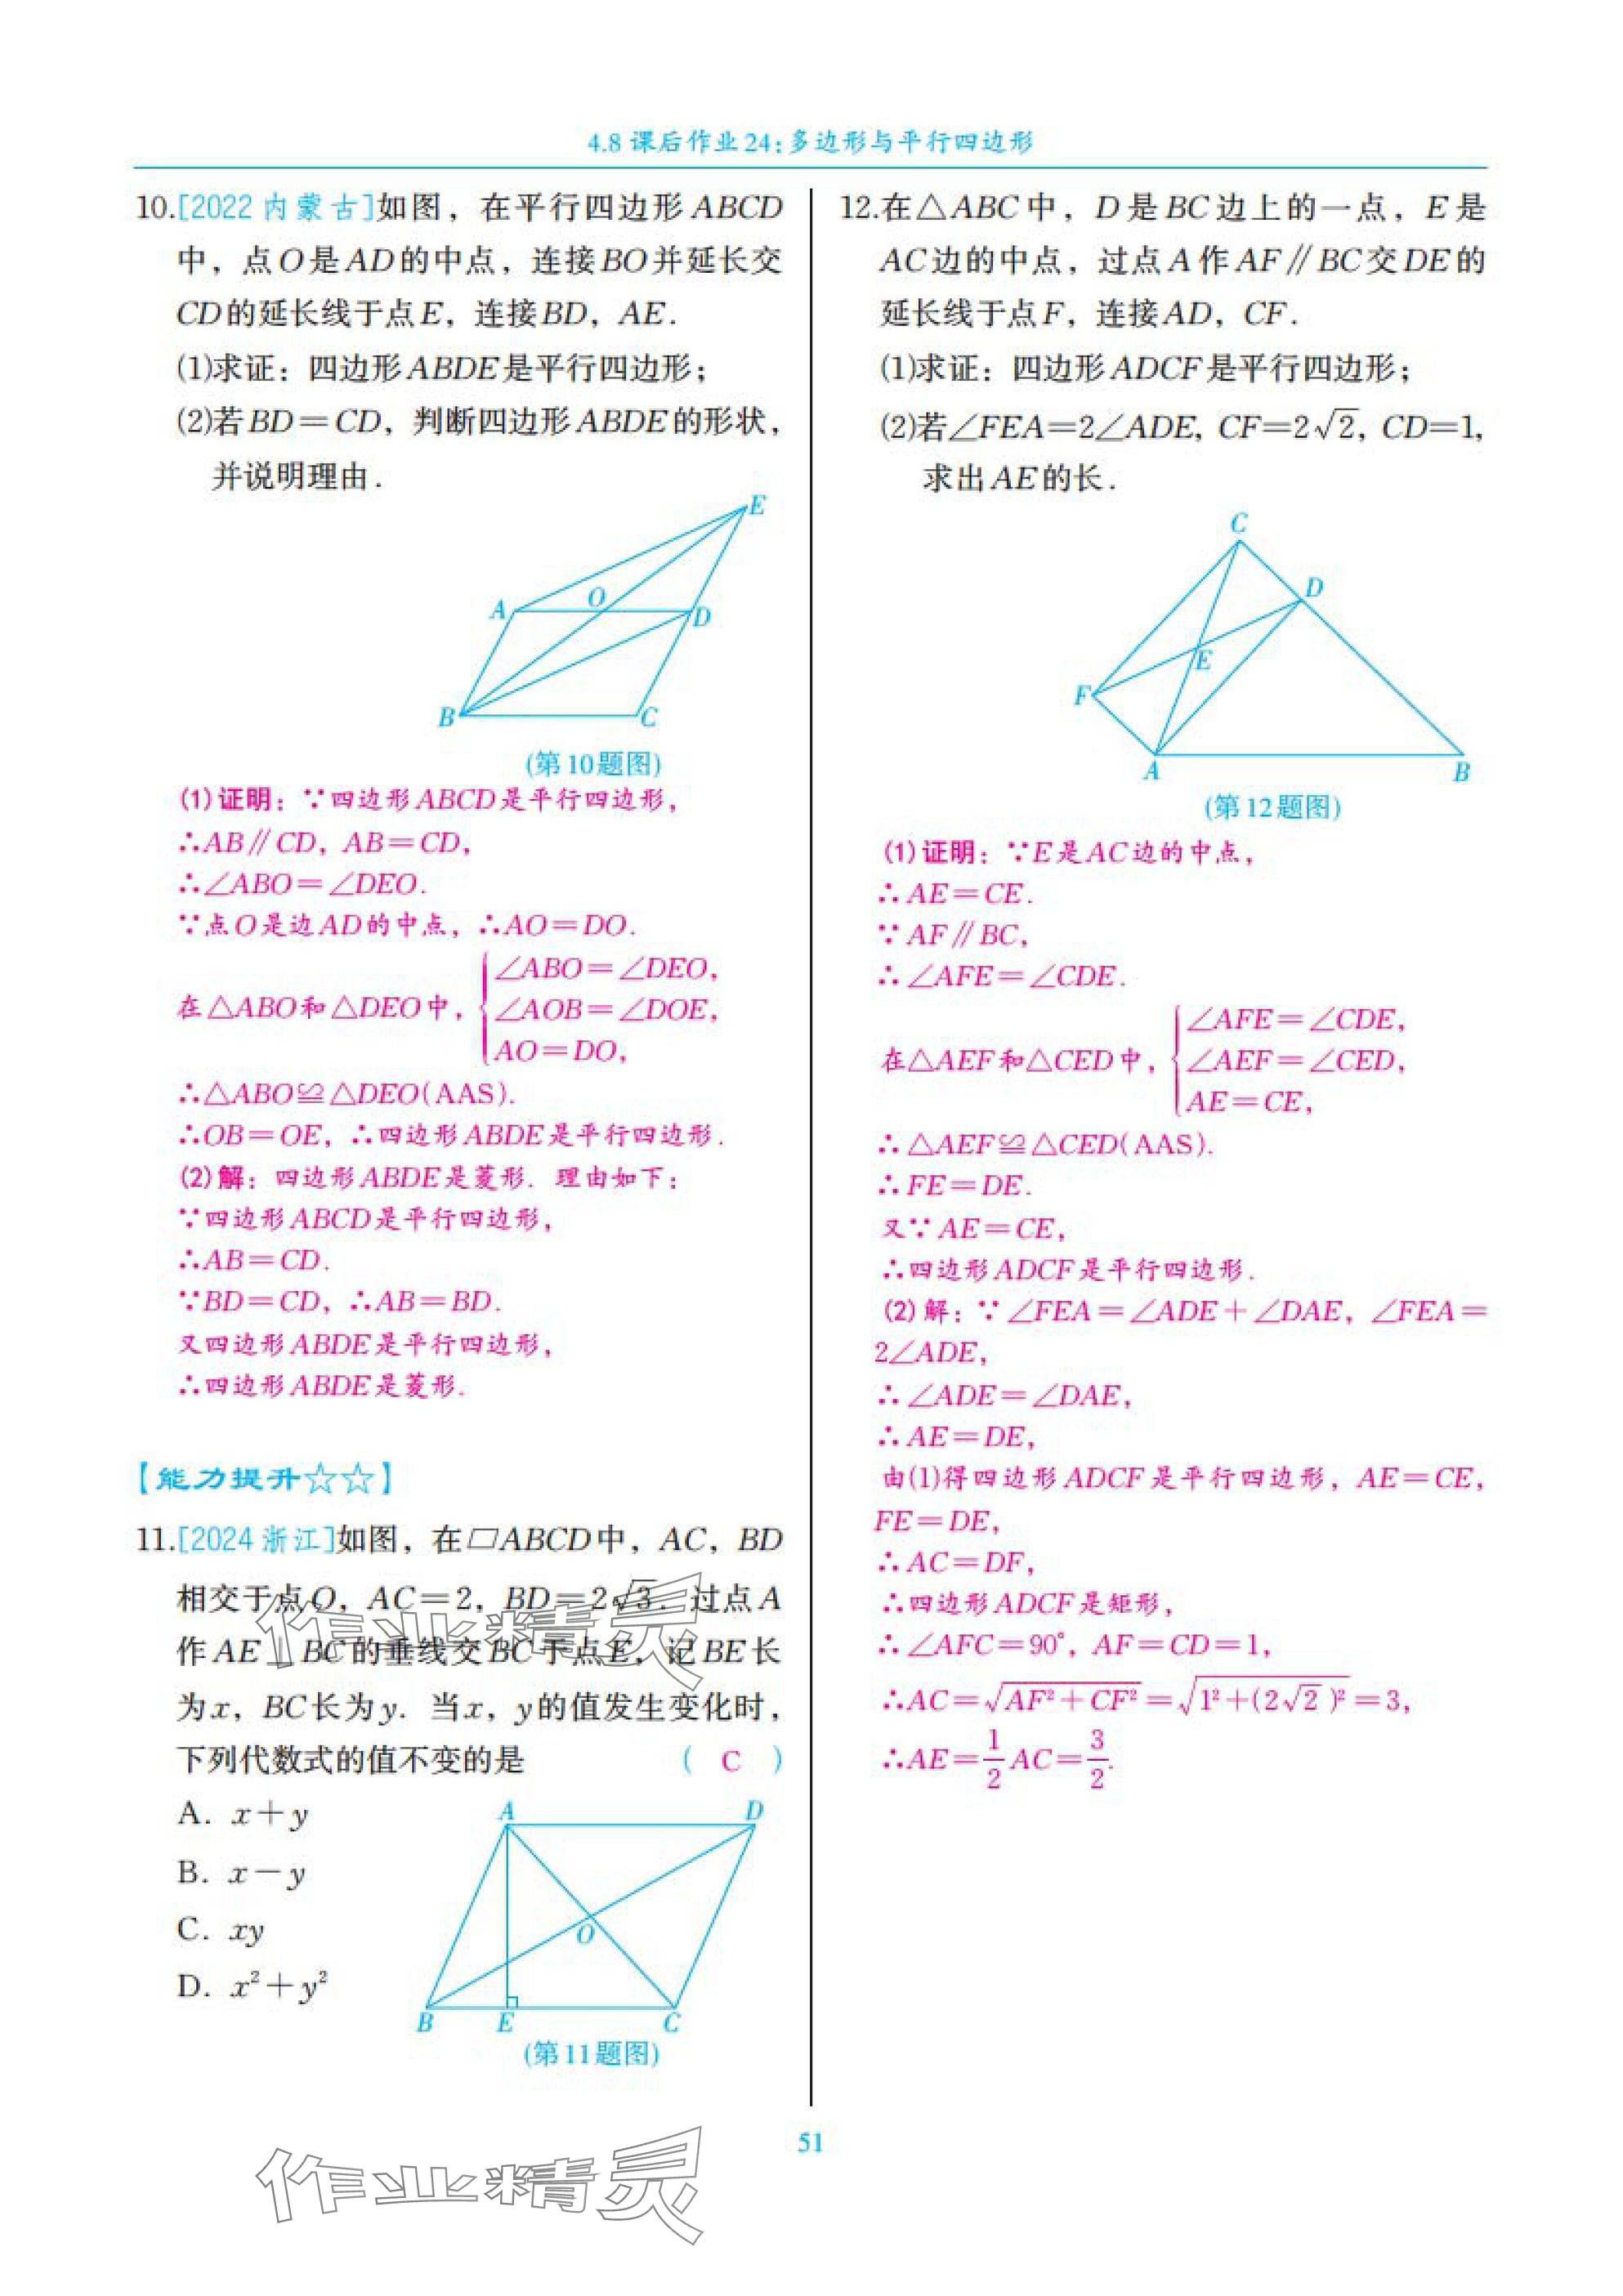 4.8 课后作业24：多边形与平行四边形
10.[2022 内蒙古]如图，在平行四边形ABCD
中，点O是AD的中点，连接BO并延长交
CD的延长线于点E，连接BD，AE.
(1)求证：四边形ABDE是平行四边形；
(2)若BD＝CD，判断四边形ABDE的形状，
并说明理由.
E
A
O
D
B
C
(第10题图)
(1)证明：∵四边形ABCD是平行四边形，
∴AB∥CD，AB＝CD，
∴∠ABO＝∠DEO.
∵点O是边AD的中点，∴AO＝DO.
在△ABO和△DEO中，
∠ABO＝∠DEO，
∠AOB＝∠DOE，
AO＝DO，
∴△ABO≌△DEO(AAS).
∴OB＝OE，∴四边形ABDE是平行四边形.
(2)解：四边形ABDE是菱形. 理由如下：
∵四边形ABCD是平行四边形，
∴AB＝CD.
∵BD＝CD，∴AB＝BD.
又四边形ABDE是平行四边形，
∴四边形ABDE是菱形.
【能力提升☆☆】
11.[2024 浙江]如图，在▱ABCD中，AC，BD
相交于点O，AC＝2，BD＝2√3. 过点A
作AE⊥BC的垂线交BC于点E，记BE长
为x，BC长为y. 当x，y的值发生变化时，
下列代数式的值不变的是 （ C ）
A. x＋y
B. x－y
C. xy
D. x²＋y²
A
D
O
B
E
C
(第11题图)
12.在△ABC中，D是BC边上的一点，E是
AC边的中点，过点A作AF∥BC交DE的
延长线于点F，连接AD，CF.
(1)求证：四边形ADCF是平行四边形；
(2)若∠FEA＝2∠ADE, CF＝2√2, CD＝1,
求出AE的长.
C
D
E
F
A
B
(第12题图)
(1)证明：∵E是AC边的中点，
∴AE＝CE.
∵AF∥BC，
∴∠AFE＝∠CDE.
在△AEF和△CED中，
∠AFE＝∠CDE，
∠AEF＝∠CED，
AE＝CE，
∴△AEF≌△CED(AAS).
∴FE＝DE.
又∵AE＝CE，
∴四边形ADCF是平行四边形.
(2)解：∵∠FEA＝∠ADE＋∠DAE，∠FEA＝
2∠ADE，
∴∠ADE＝∠DAE，
∴AE＝DE，
由(1)得四边形ADCF是平行四边形，AE＝CE，
FE＝DE，
∴AC＝DF，
∴四边形ADCF是矩形，
∴∠AFC＝90°，AF＝CD＝1，
∴AC＝√(AF²＋CF²)＝√(1²＋(2√2)²)＝3，
∴AE＝1/2 AC＝3/2.
51
作业精灵
作业精灵